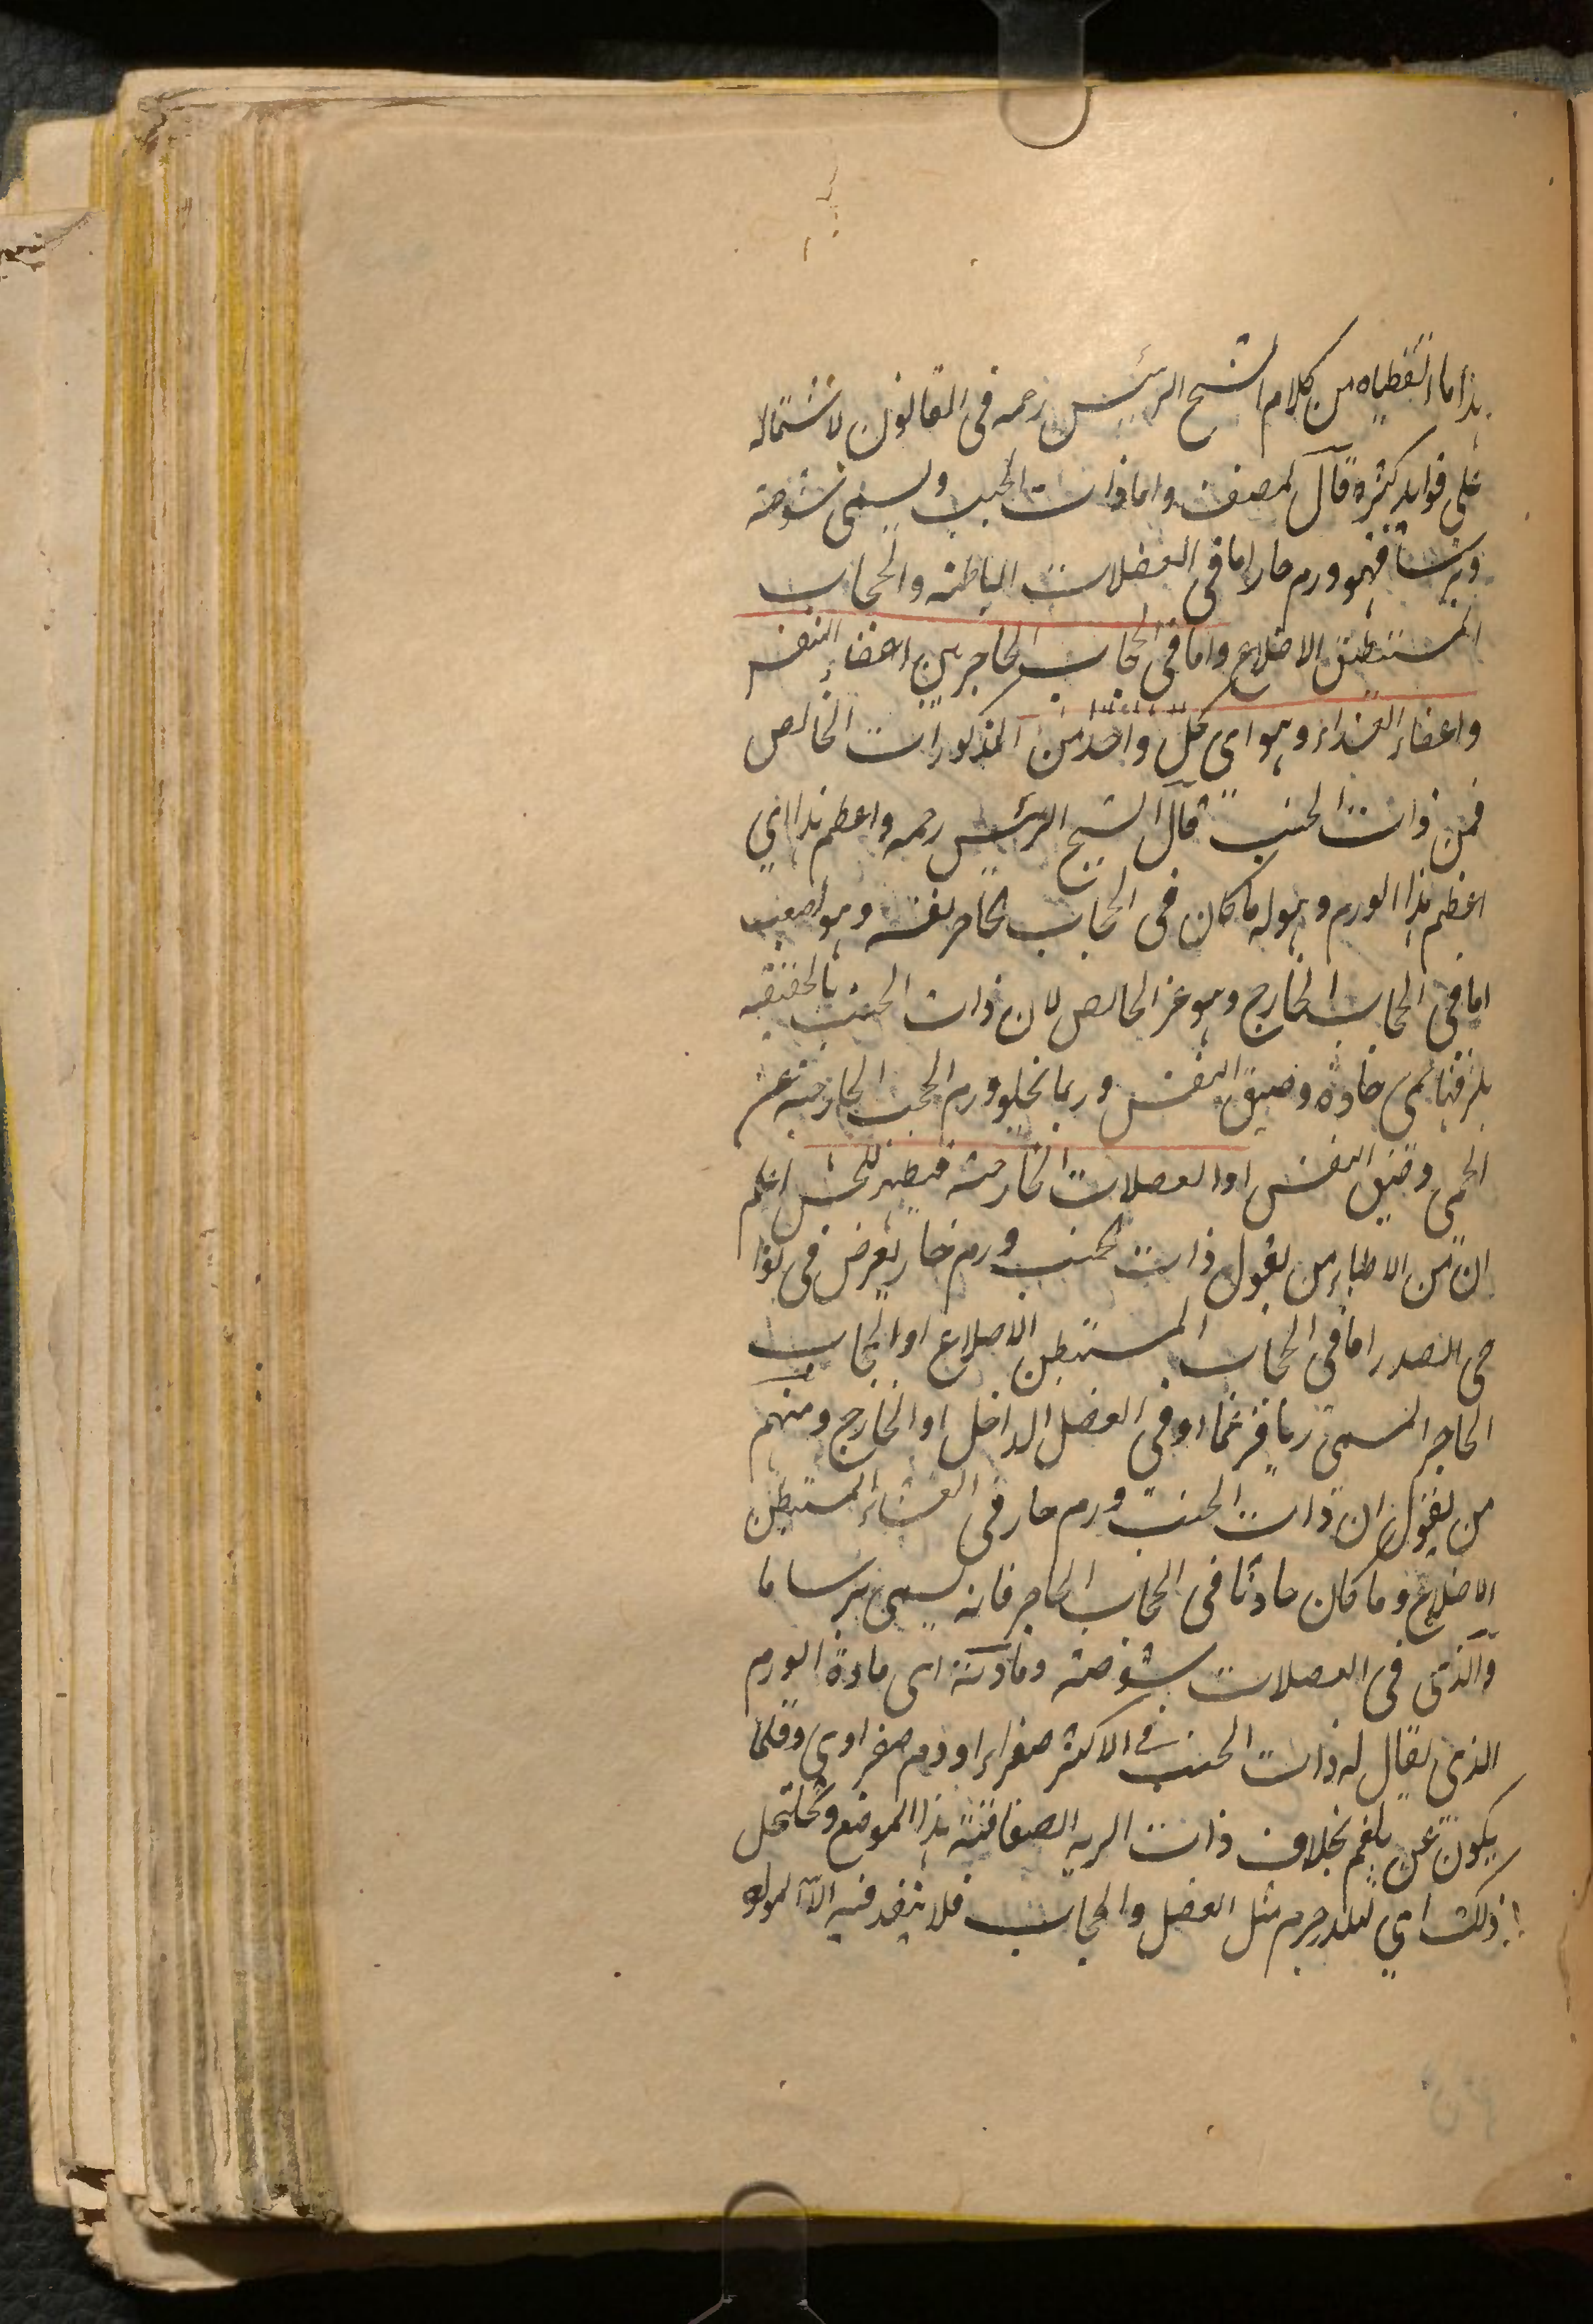 هذا ما التقطناه من كلام الشيخ الرئيس رحمه فى القانون لاشتماله
على فوايد كثيرة قال المصنف واما ذات الجنب ويسمى شوصة
وبرساما فهو ورم حار اما فى العضلات الباطنة والحجاب
المستبطن الاضلاع واما فى الحجاب الحاجز بين اعضاء النفس
واعضاء الغذاء وهو اى كل واحد من المذكورات الخالص
فمن ذات الجنب قال الشيخ الرئيس رحمه واعظم هذا اي
اعظم هذا الورم وهوله ما كان فى الحجاب الحاجز نفسه وهو اصعب
اما فى الحجاب الخارج وهو غير الخالص لان ذات الجنب بالحقيقة
يلزقها حمى حادة وضيق النفس وربما يخلو ورم الحجب الخارجة عن
الحمى وضيق النفس او العضلات الخارجة فيظهر للحس اعلم
ان من الاطباء من يقول ذات الجنب ورم حار يعرض فى نوا
حى الصدر اما فى الحجاب المستبطن الاضلاع او الحجاب
الحاجز المسمى ديافرغما او فى العضل الداخل او الخارج ومنهم
من يقول ان ذات الجنب ورم حار فى الغشاء المستبطن
الاضلاع وما كان حادثا فى الحجاب الحاجز فانه يسمى برساما
والذى فى العضلات شوصة ومادته اى مادة الورم
الذى يقال له ذات الجنب فى الاكثر صفراء او دم صفراوى وقلما
يكون عن بلغم بخلاف ذات الرية لصفاقة هذا الموضع وتخلخل
ذلك اي لتلذذ جرم مثل العضل والحجاب فلا ينفذ فيه الا المواد